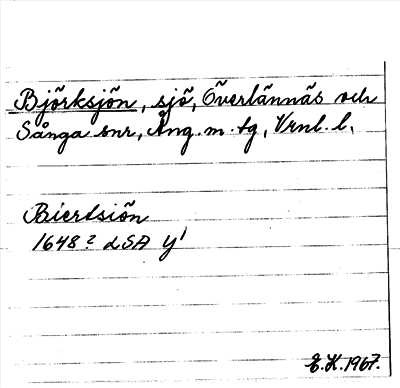 Björksjön, sjö, Överlännäs och
Sånga snr, Ång. m. tg, Vrnl. l.
Biertsiön
1648? LSA Y'
E.K. 1967.